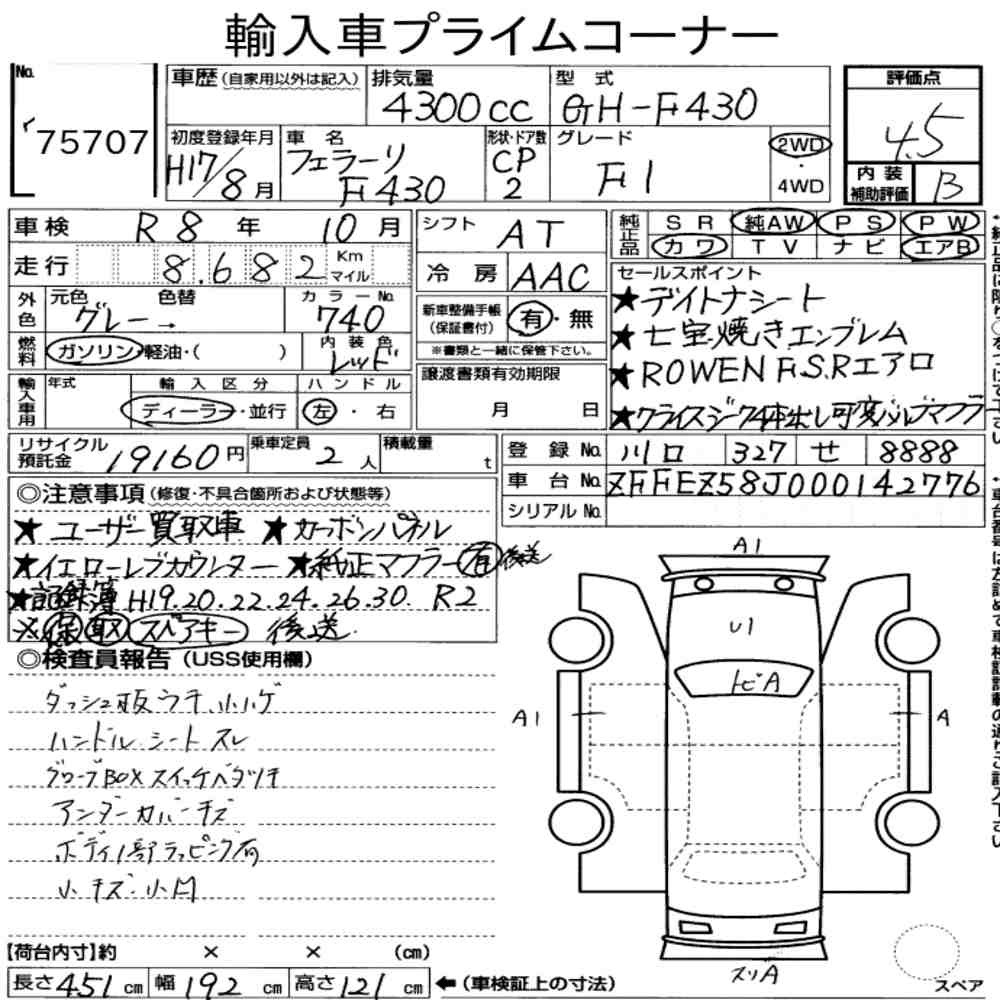 輸入車プライムコーナー
No. 75707
車歴(自家用以外は記入) 排気量 4300cc 型式 GH-F430
初度登録年月 H17/8月 車名 フェラーリ F430 形状・ドア数 CP 2 グレード F1 2WD・4WD
評価点 4.5
内装補助評価 B
車検 R8年 10月
走行 8.682 Km マイル
外色 元色 グレー→ 色替 カラーNo. 740
燃料 ガソリン・軽油・( ) 内装色 レッド
輸入車用 年式 輸入区分 ディーラー・並行 ハンドル 左・右
シフト AT
冷房 AAC
新車整備手帳(保証書付) 有・無
※書類と一緒に保管下さい。
譲渡書類有効期限
月 日
純正品 SR 純AW PS PW
カワ TV ナビ エアB
セールスポイント
★デイトナシート
★七宝焼きエンブレム
★ROWEN F.S.Rエアロ
★クライスジーク4本出し可変バルブマフラー
リサイクル預託金 19160円 乗車定員 2人 積載量 t
登録No. 川口 327 せ 8888
車台No. ZFFEZ58J000142776
シリアルNo.
◎注意事項(修復・不具合箇所および状態等)
★ユーザー買取車 ★カーボンパネル
★イエローレブカウンター ★純正マフラー有後送
★記録簿 H19.20.22.24.26.30. R2
※保 取 スペアキー 後送
◎検査員報告(USS使用欄)
ダッシュ板ウキ、小ハゲ
ハンドル シート スレ
グローブBOXスイッチベタツキ
アンダーカバーキズ
ボディ1部ラッピング有
小キズ・小凹
A1
U1
トビA
A1
A
スリA
スペア
【荷台内寸】約 × × (cm)
長さ451cm 幅192cm 高さ121cm ←(車検証上の寸法)